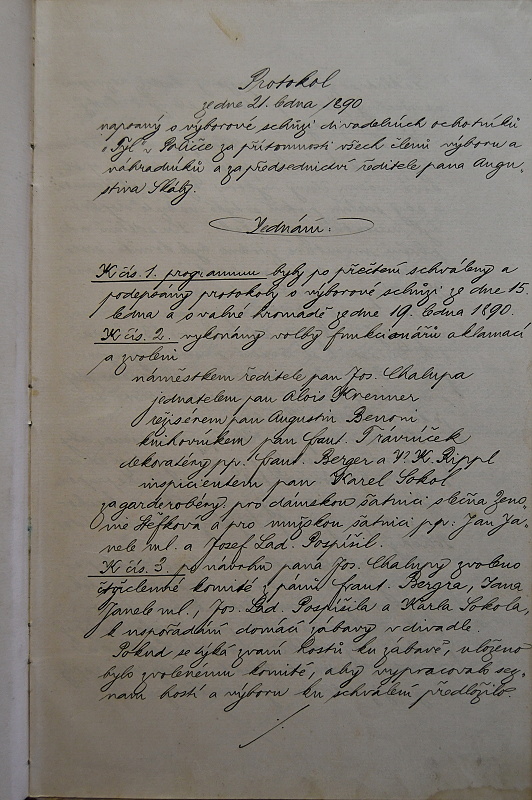 Protokol
ze dne 21. ledna 1890
napsaný o výborové schůzi divadelních ochotníků
„Tyl" v Poličce za přítomnosti všech členů výboru a
náhradníků a za předsednictví ředitele pana Augu-
stina Skály.
Jednání:
K čís. 1. programmu byly po přečtení schváleny a
podepsány protokoly o výborové schůzi ze dne 15.
ledna a o valné hromadě ze dne 19. ledna 1890.
K čís. 2. vykonány volby funkcionářů aklamací
a zvoleni
náměstkem ředitele pan Jos. Chalupa
jednatelem pan Alois Kremer
režisérem pan Augustin Benoni
knihovníkem pan frant. Trávníček
dekoratéry pp. frant. Berger a V. K. Rippl
inspicientem pan Karel Sokol
za garderobéry pro dámskou šatnici slečna Ženo-
nie Štěfková a pro mužskou šatnici pp. Jan Ja-
nele ml. a Josef Lad. Pospíšil.
K čís. 3. po návrhu pana Jos. Chalupy zvoleno
čtyřčlenné komité z pánů frant. Bergra, Jana
Janele ml., Jos. Lad. Pospíšila a Karla Sokola,
k uspořádání domácí zábavy v divadle.
Pokud se týká zvaní hostů ku zábavě, uloženo
bylo zvolenému komité, aby vypracovalo sez-
nam hostí a výboru ku schválení předložilo.